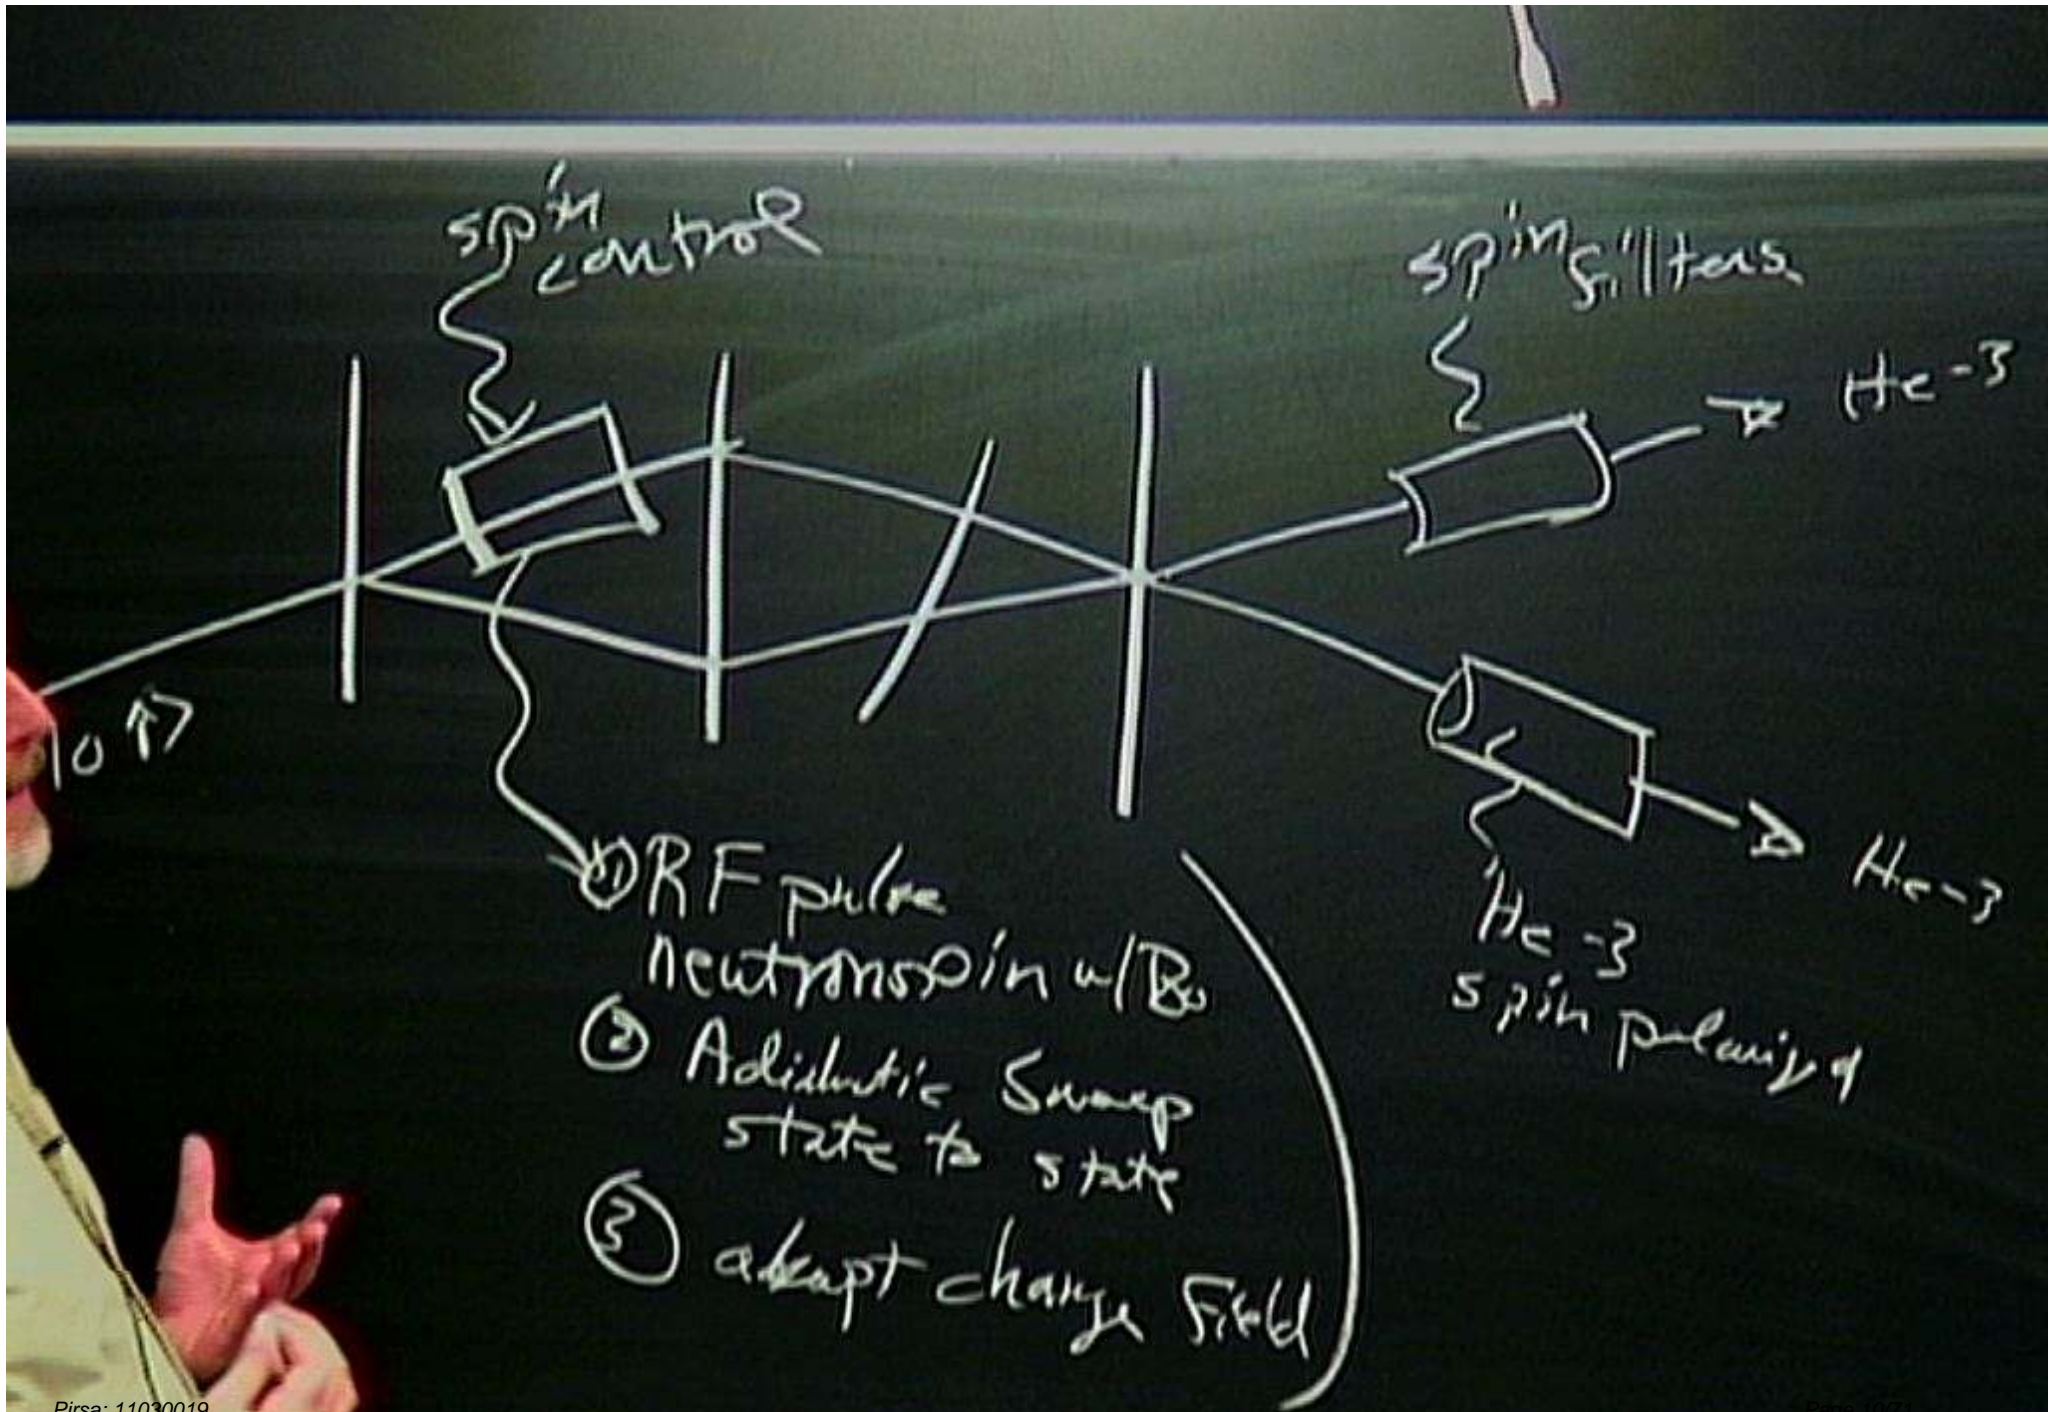 spin
control
spin
filters
He-3
|0↑>
① RF pulse
neutron spin w/ B₀
② Adiabatic Sweep
state to state
③ abrupt change Field
He-3
He-3
spin polarized
Pirsa: 11030019